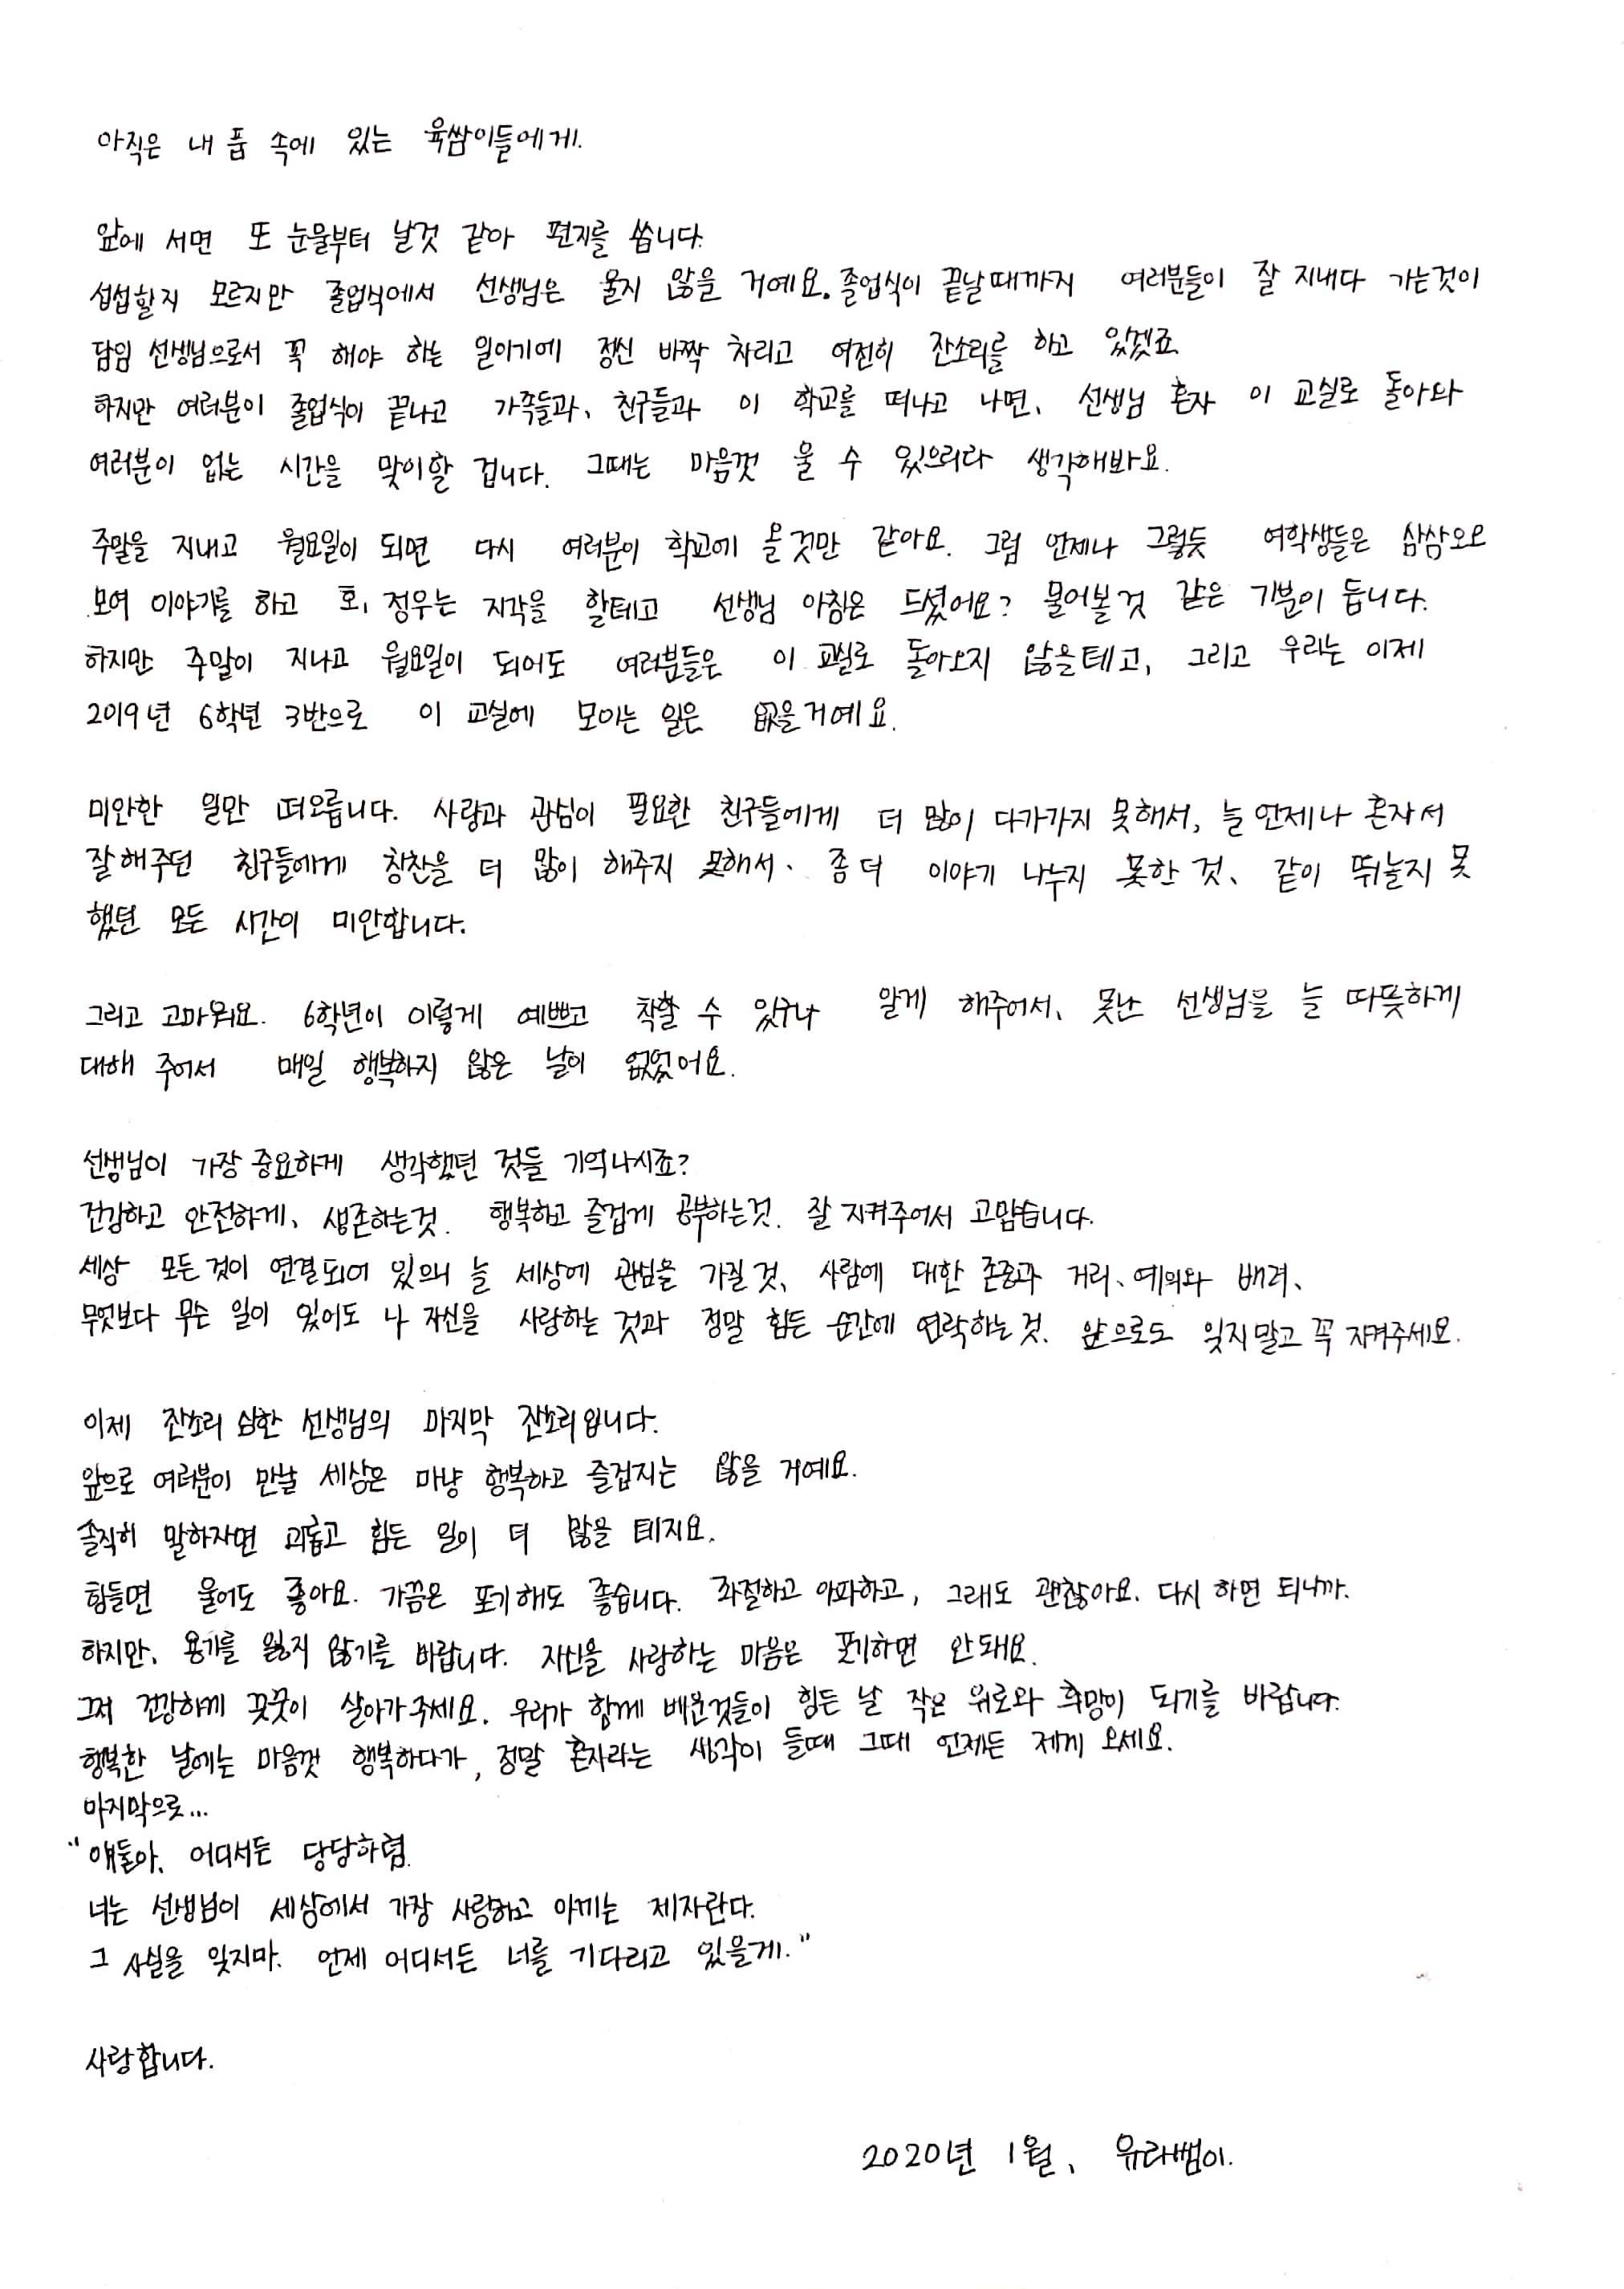 아직은 내 품 속에 있는 육쌈이들에게.
앞에 서면 또 눈물부터 날것 같아 편지를 씁니다.
섭섭할지 모르지만 졸업식에서 선생님은 울지 않을 거예요. 졸업식이 끝날때까지 여러분들이 잘 지내다 가는것이
담임 선생님으로서 꼭 해야 하는 일이기에 정신 바짝 차리고 여전히 잔소리를 하고 있겠죠.
하지만 여러분이 졸업식이 끝나고 가족들과, 친구들과 이 학교를 떠나고 나면, 선생님 혼자 이 교실로 돌아와
여러분이 없는 시간을 맞이할 겁니다. 그때는 마음껏 울 수 있으리라 생각해봐요.
주말을 지내고 월요일이 되면 다시 여러분이 학교에 올것만 같아요. 그럼 언제나 그렇듯 여학생들은 삼삼오오
모여 이야기를 하고 호, 정우는 지각을 할테고 선생님 아침은 드셨어요? 물어볼것 같은 기분이 듭니다.
하지만 주말이 지나고 월요일이 되어도 여러분들은 이 교실로 돌아오지 않을테고, 그리고 우리는 이제
2019년 6학년 3반으로 이 교실에 모이는 일은 없을거예요.
미안한 일만 떠오릅니다. 사랑과 관심이 필요한 친구들에게 더 많이 다가가지 못해서, 늘 언제나 혼자서
잘해주던 친구들에게 칭찬을 더 많이 해주지 못해서. 좀 더 이야기 나누지 못한 것, 같이 뛰놀지 못
했던 모든 시간이 미안합니다.
그리고 고마워요. 6학년이 이렇게 예쁘고 착할 수 있구나 알게 해주어서, 못난 선생님을 늘 따뜻하게
대해 주어서 매일 행복하지 않은 날이 없었어요.
선생님이 가장 중요하게 생각했던 것들 기억나시죠?
건강하고 안전하게, 생존하는것. 행복하고 즐겁게 공부하는것. 잘 지켜주어서 고맙습니다.
세상 모든것이 연결되어 있으니 늘 세상에 관심을 가질것, 사람에 대한 존중과 거리, 예의와 배려,
무엇보다 무슨 일이 있어도 나 자신을 사랑하는 것과 정말 힘든 순간에 연락하는것. 앞으로도 잊지말고 꼭 지켜주세요.
이제 잔소리 심한 선생님의 마지막 잔소리입니다.
앞으로 여러분이 만날 세상은 마냥 행복하고 즐겁지는 않을 거예요.
솔직히 말하자면 괴롭고 힘든 일이 더 많을 테지요.
힘들면 울어도 좋아요. 가끔은 포기해도 좋습니다. 좌절하고 아파하고, 그래도 괜찮아요. 다시 하면 되니까.
하지만, 용기를 잃지 않기를 바랍니다. 자신을 사랑하는 마음은 포기하면 안돼요.
그저 건강하게 꿋꿋이 살아가주세요. 우리가 함께 배운것들이 힘든 날 작은 위로와 희망이 되기를 바랍니다.
행복한 날에는 마음껏 행복하다가, 정말 혼자라는 생각이 들때 그때 언제든 제게 오세요.
마지막으로...
"얘들아, 어디서든 당당하렴.
너는 선생님이 세상에서 가장 사랑하고 아끼는 제자란다.
그 사실을 잊지마. 언제 어디서든 너를 기다리고 있을게."
사랑합니다.
2020년 1월, 유라쌤이.